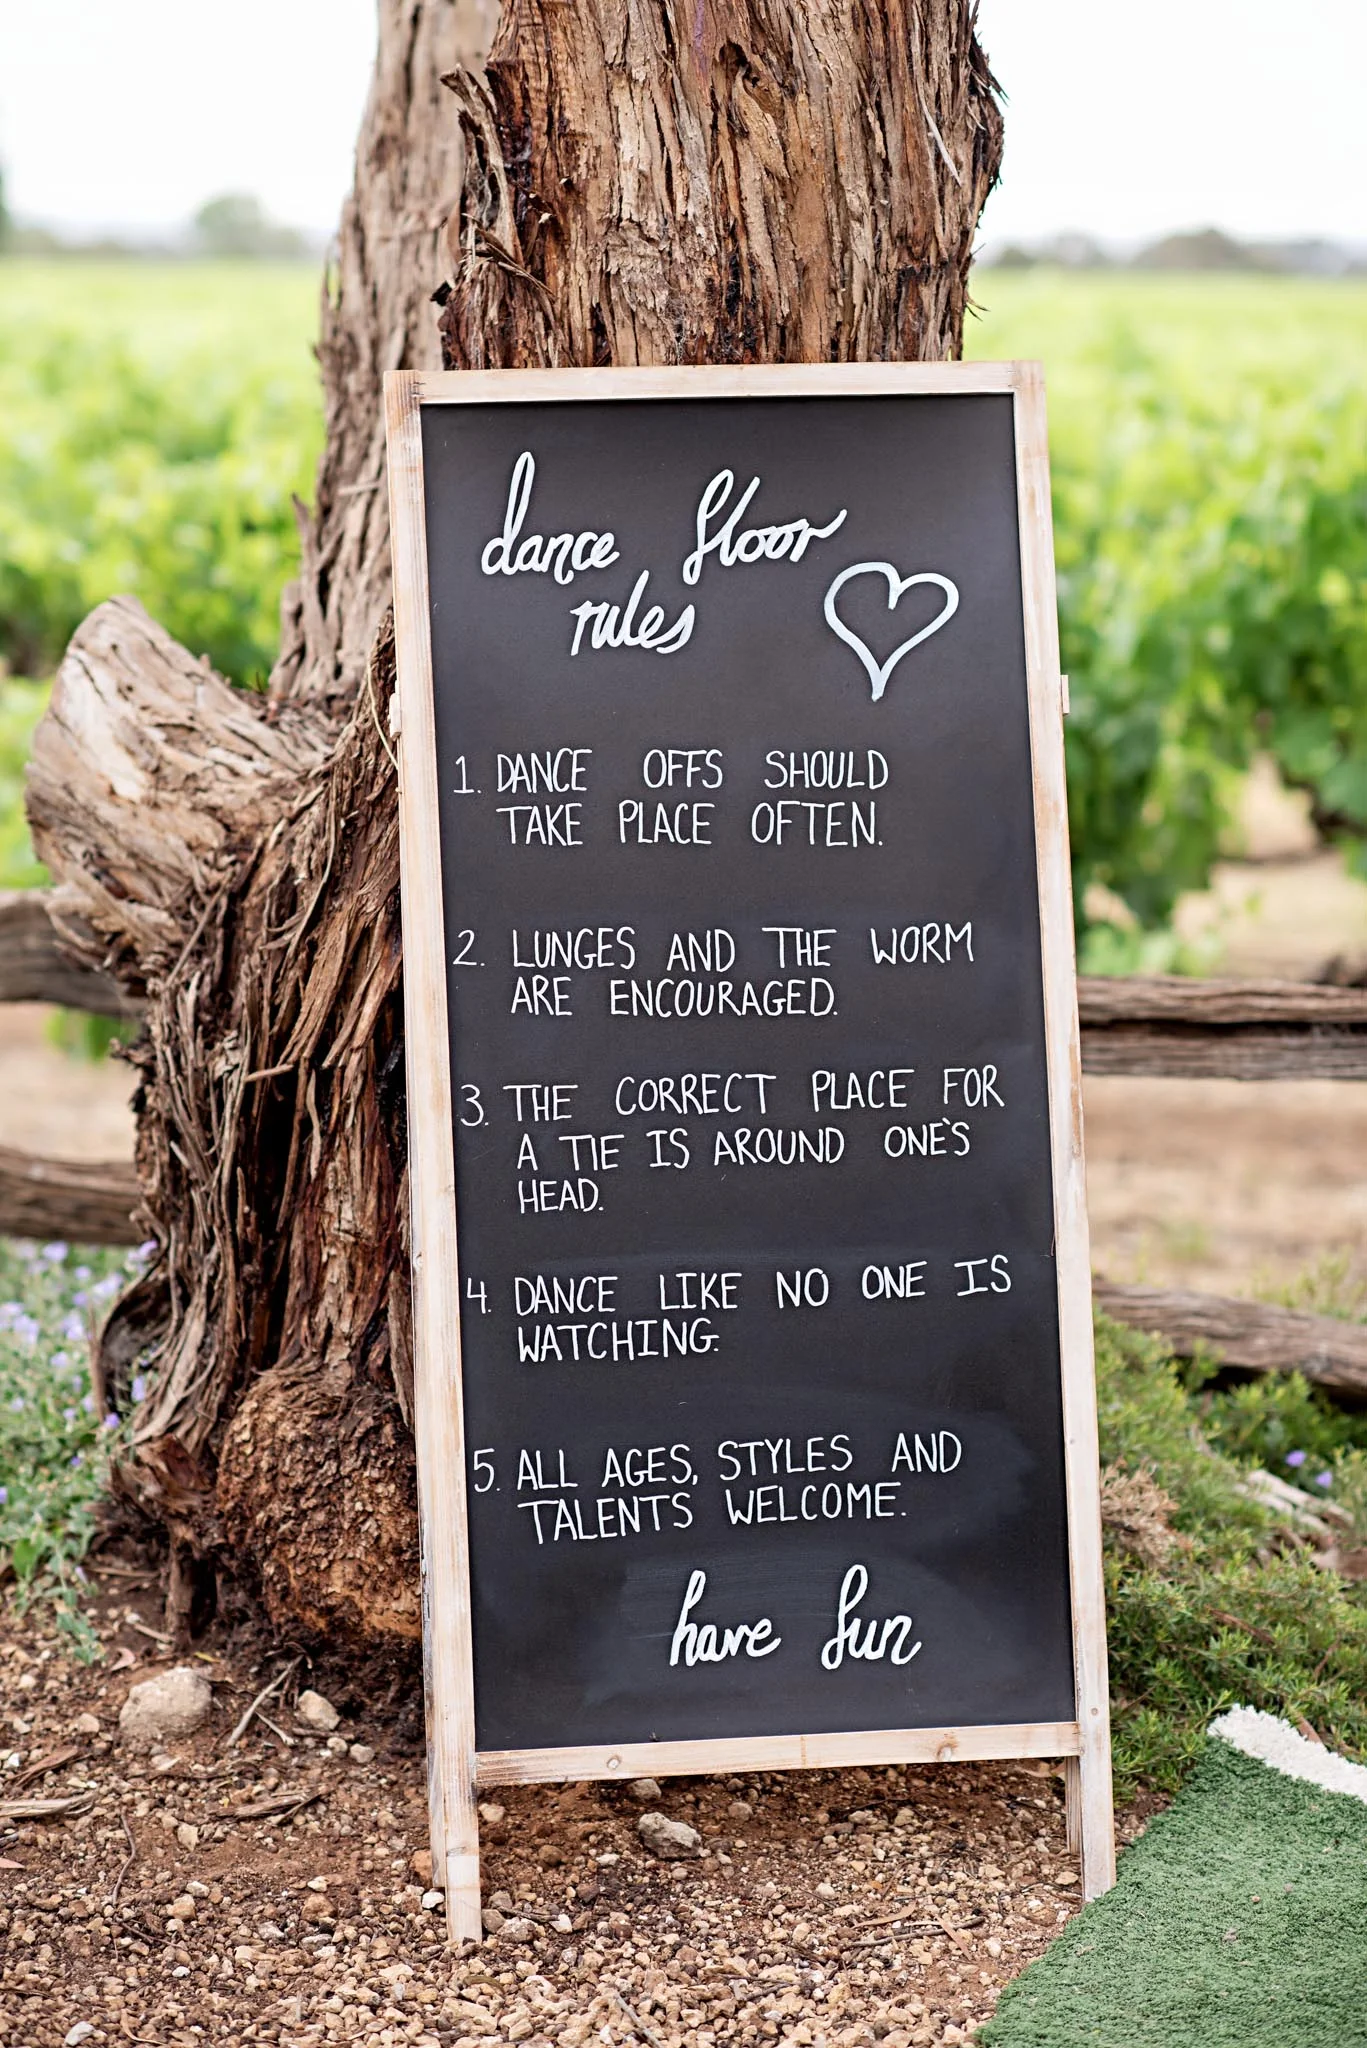 dance floor
rules
1. DANCE OFFS SHOULD
TAKE PLACE OFTEN.
2. LUNGES AND THE WORM
ARE ENCOURAGED.
3. THE CORRECT PLACE FOR
A TIE IS AROUND ONE'S
HEAD.
4. DANCE LIKE NO ONE IS
WATCHING.
5. ALL AGES, STYLES AND
TALENTS WELCOME.
have fun